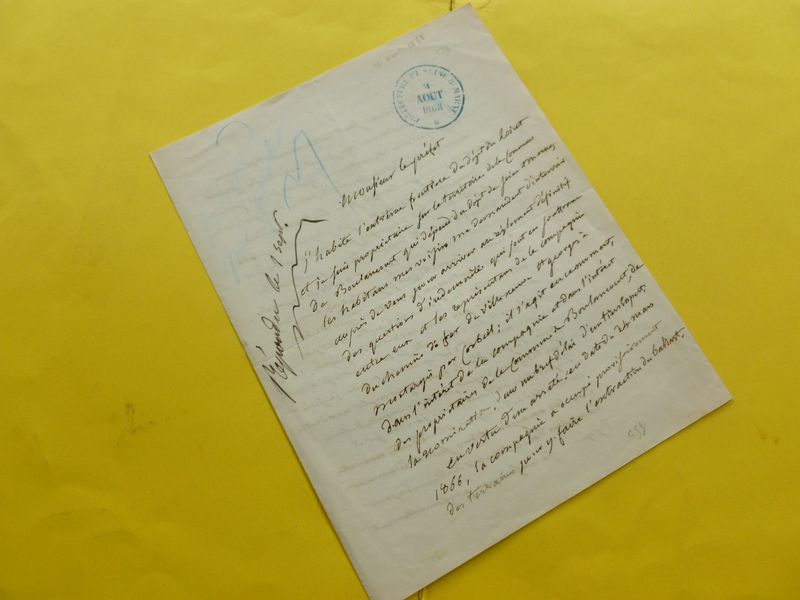 PRÉFECTURE DE SEINE & MARNE
4
AOUT
1868
Répondu le 1 Sept
Monsieur le préfet
J'habite l'extrème frontière du dépt du Loiret
et je suis propriétaire sur le territoire de la Commune
de Boulancourt qui dépend du dépt de Seine & marne,
les habitans mes voisins me demandent d'intervenir
auprès de vous pour arriver au règlement définitif
des questions d'indemnités qui sont en
entre eux et les représentans de la compagnie
du chemin de fer de Villeneuve St georges à
montargis par Corbeil; il s'agit en ce moment,
dans l'intérêt de la compagnie et dans l'intérêt
des propriétaires de la Commune de Boulancourt, de
la nomination, d'un
en vertu d'un arrêté en date du 24 mars
1866, la compagnie a occupé provisoirement
des terrains pour y faire l'extraction du ballast.